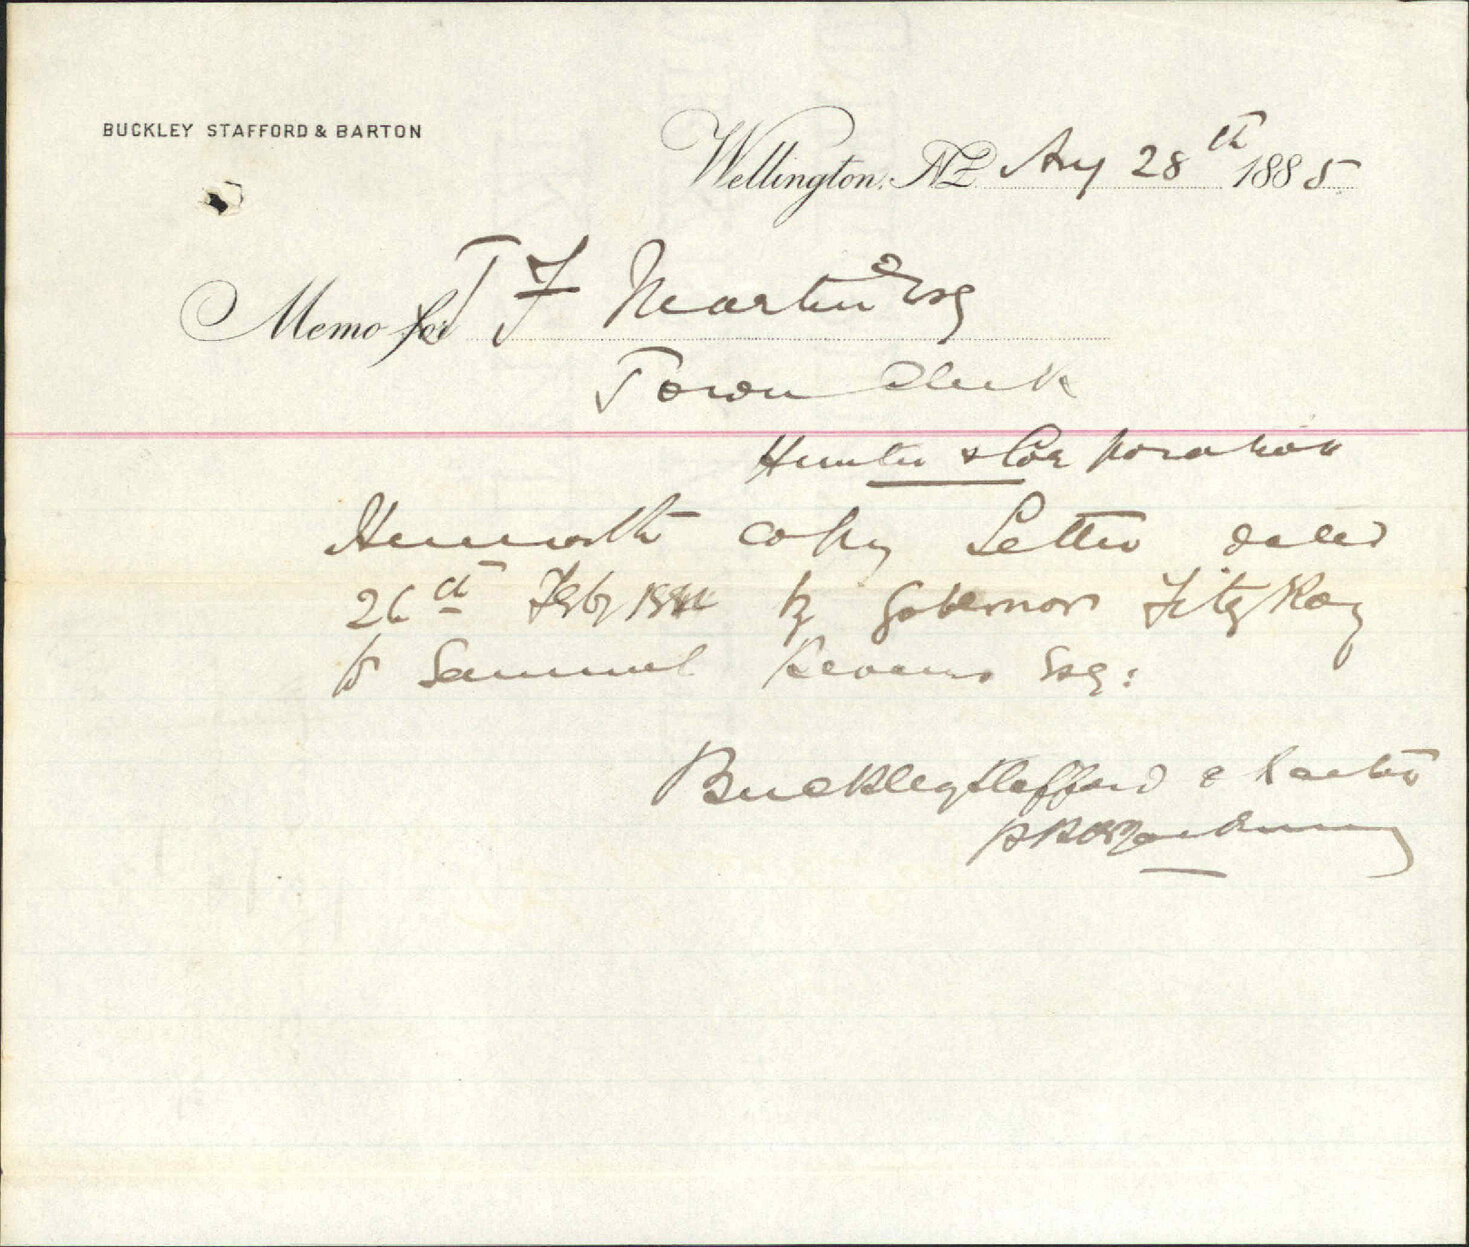 BUCKLEY STAFFORD & BARTON
Wellington, NZ Aug 28th 1885
Memo for J F Martin Esq
Town Clerk
Hunter & Corporation
Herewith copy Letter dated
26th Feby by Governor FitzRoy
to Samuel Revans Esq:
Buckley Stafford & Barton